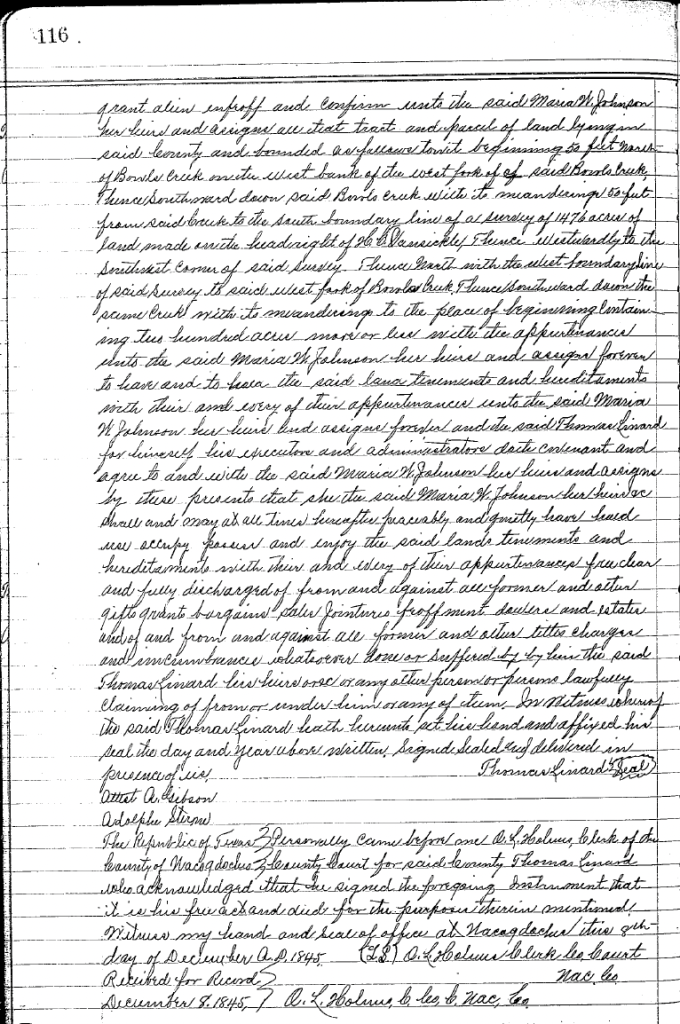 116.
grant alien enfroff and confirm unto the said Maria W. Johnson
her heirs and assigns all that tract and parcel of land lying in
said County and bounded as follows towit beginning 50 feet North
of Bowls Creek on the west bank of the west fork of of said Bowls Creek,
Thence Southward down said Bowls Creek with its meanderings 50 feet
from said Creek to the South boundary line of a survey of 1476 acres of
land made on the headright of H. C. Vansickle, Thence Westwardly to the
Southwest corner of said survey. Thence North with the west boundary line
of said survey to said West fork of Bowls Creek, Thence Southward down the
same Creek with its meanderings to the place of beginning contain
ing two hundred acres more or less with the appurtenances
unto the said Maria W. Johnson her heirs and assigns forever
to have and to the said land tenements and hereditaments
with their and every of their appurtenances unto the said Maria
W Johnson her heirs and assigns forever and the said Thomas Linard
for himself his executors and administrators doth covenant and
agree to and with the said Maria W. Johnson her heirs and assigns
by these presents that she the said Maria W. Johnson her heirs &c
shall and may at all times hereafter peaceably and quietly have
use occupy possess and enjoy the said lands tenements and
hereditaments with their and every of their appurtenances free clear
and fully discharged of from and against all former and other
gifts grants bargains sales Jointures feoffment dowers and estates
and of and from and against all former and other titles charges
and incumbrances whatsoever done or suffered by by him the said
Thomas Linard his heirs or &c or any other person or persons lawfully
claiming of from or under him or any of them. In witness whereof
the said Thomas Linard hath hereunto set his hand and affixed his
seal the day and year above written. Signed Sealed and delivered in
presence of us Thomas Linard {Seal}
Attest A. Gibson
Adolphe Sterne
The Republic of Texas } Personally came before me O. L. Holmes, Clerk of the
County of Nacogdoches } County Court for said County Thomas Linard
who acknowledged that he signed the foregoing Instrument that
it is his free act and deed for the purposes therein mentioned.
Witness my hand and seal of office at Nacogdoches this 8th
day of December A.D. 1845. (L.S.) O. L. Holmes Clerk Co. Court
Received for Record } Nac. Co.
December 8. 1845. } O. L. Holmes, C. Co. C. Nac. Co.